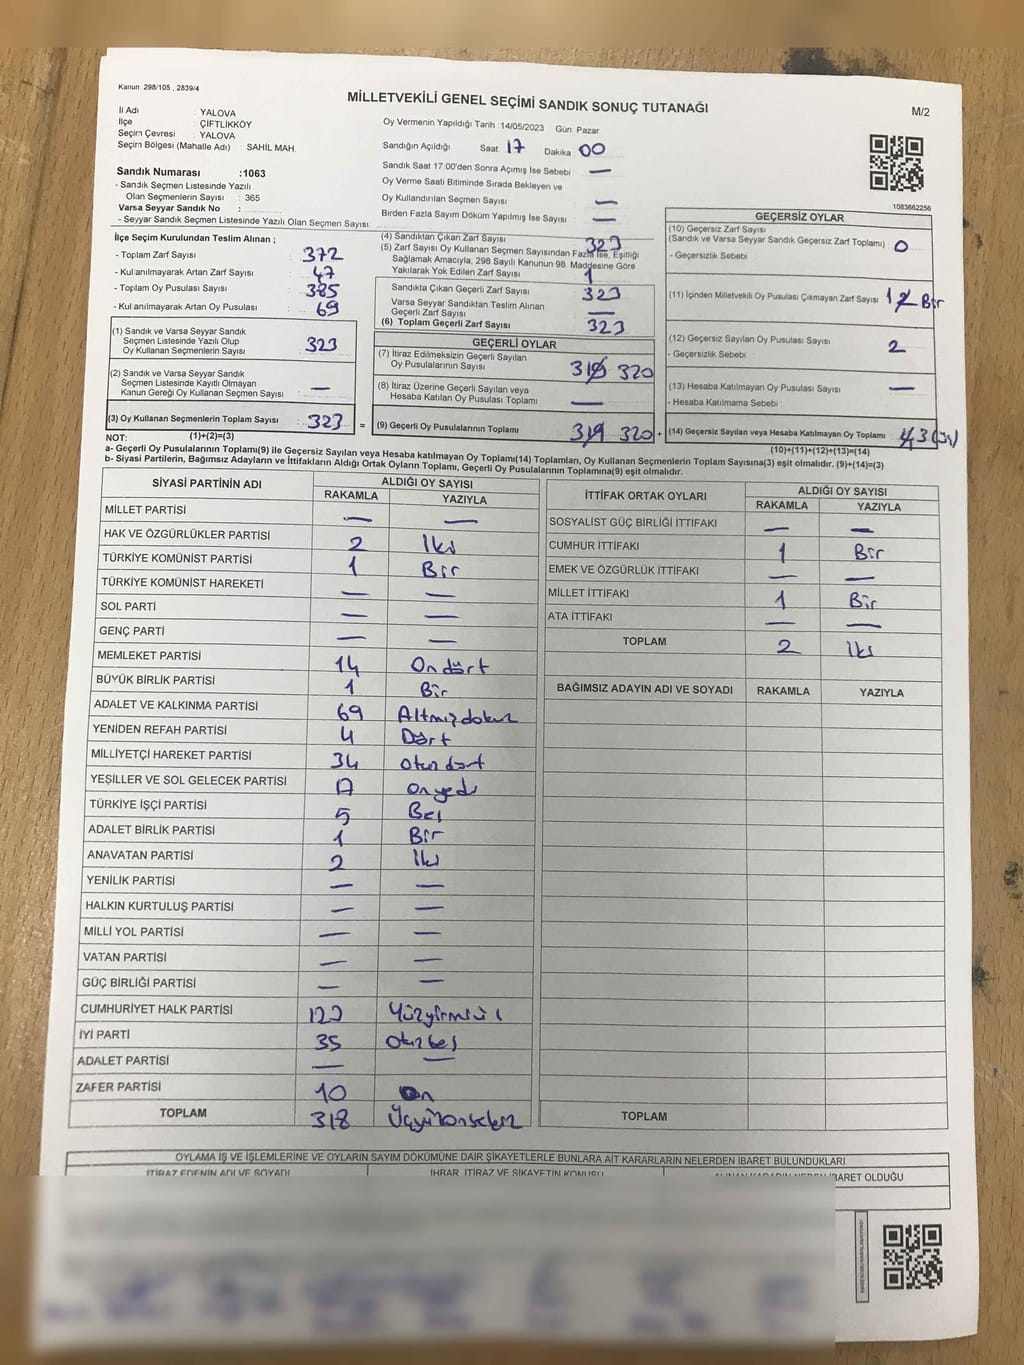 Kanun 298/105 , 2839/4
MİLLETVEKİLİ GENEL SEÇİMİ SANDIK SONUÇ TUTANAĞI
M/2
İl Adı : YALOVA
İlçe : ÇİFTLİKKÖY
Seçim Çevresi : YALOVA
Seçim Bölgesi (Mahalle Adı) : SAHİL MAH.
Sandık Numarası :1063
- Sandık Seçmen Listesinde Yazılı
Olan Seçmenlerin Sayısı : 365
Varsa Seyyar Sandık No :
- Seyyar Sandık Seçmen Listesinde Yazılı Olan Seçmen Sayısı:
Oy Vermenin Yapıldığı Tarih :14/05/2023 Gün: Pazar
Sandığın Açıldığı Saat 17 Dakika 00
Sandık Saat 17:00'den Sonra Açımış İse Sebebi : —
Oy Verme Saati Bitiminde Sırada Bekleyen ve
Oy Kullandırılan Seçmen Sayısı —
Birden Fazla Sayım Döküm Yapılmış İse Sayısı —
1083662256
İlçe Seçim Kurulundan Teslim Alınan ;
- Toplam Zarf Sayısı : 372
- Kullanılmayarak Artan Zarf Sayısı : 47
- Toplam Oy Pusulası Sayısı : 385
- Kullanılmayarak Artan Oy Pusulası : 69
(1) Sandık ve Varsa Seyyar Sandık
Seçmen Listesinde Yazılı Olup
Oy Kullanan Seçmenlerin Sayısı : 323
(2) Sandık ve Varsa Seyyar Sandık
Seçmen Listesinde Kayıtlı Olmayan
Kanun Gereği Oy Kullanan Seçmen Sayısı : —
(3) Oy Kullanan Seçmenlerin Toplam Sayısı : 323
(1)+(2)=(3)
(4) Sandıktan Çıkan Zarf Sayısı 323
(5) Zarf Sayısı Oy Kullanan Seçmen Sayısından Fazla İse, Eşitliği
Sağlamak Amacıyla; 298 Sayılı Kanunun 98. Maddesine Göre
Yakılarak Yok Edilen Zarf Sayısı 1
Sandıkta Çıkan Geçerli Zarf Sayısı 323
Varsa Seyyar Sandıktan Teslim Alınan
Geçerli Zarf Sayısı —
(6) Toplam Geçerli Zarf Sayısı 323
GEÇERLİ OYLAR
(7) İtiraz Edilmeksizin Geçerli Sayılan
Oy Pusulalarının Sayısı : 319 320
(8) İtiraz Üzerine Geçerli Sayılan veya
Hesaba Katılan Oy Pusulası Toplamı —
= (9) Geçerli Oy Pusulalarının Toplamı 319 320 +
GEÇERSİZ OYLAR
(10) Geçersiz Zarf Sayısı
(Sandık ve Varsa Seyyar Sandık Geçersiz Zarf Toplamı) : 0
- Geçersizlik Sebebi :
(11) İçinden Milletvekili Oy Pusulası Çıkmayan Zarf Sayısı 1 Bir
(12) Geçersiz Sayılan Oy Pusulası Sayısı : 2
- Geçersizlik Sebebi :
(13) Hesaba Katılmayan Oy Pusulası Sayısı : —
- Hesaba Katılmama Sebebi :
(14) Geçersiz Sayılan veya Hesaba Katılmayan Oy Toplamı : 4 3 (üç)
(10)+(11)+(12)+(13)=(14)
NOT:
a- Geçerli Oy Pusulalarının Toplamı(9) ile Geçersiz Sayılan veya Hesaba katılmayan Oy Toplamı(14) Toplamları, Oy Kullanan Seçmenlerin Toplam Sayısına(3) eşit olmalıdır. (9)+(14)=(3)
b- Siyasi Partilerin, Bağımsız Adayların ve İttifakların Aldığı Ortak Oyların Toplamı, Geçerli Oy Pusulalarının Toplamına(9) eşit olmalıdır.
SİYASİ PARTİNİN ADI ALDIĞI OY SAYISI
RAKAMLA YAZIYLA
MİLLET PARTİSİ — —
HAK VE ÖZGÜRLÜKLER PARTİSİ 2 İki
TÜRKİYE KOMÜNİST PARTİSİ 1 Bir
TÜRKİYE KOMÜNİST HAREKETİ — —
SOL PARTİ — —
GENÇ PARTİ — —
MEMLEKET PARTİSİ 14 Ondört
BÜYÜK BİRLİK PARTİSİ 1 Bir
ADALET VE KALKINMA PARTİSİ 69 Altmışdokuz
YENİDEN REFAH PARTİSİ 4 Dört
MİLLİYETÇİ HAREKET PARTİSİ 34 otuzdört
YEŞİLLER VE SOL GELECEK PARTİSİ 17 onyedi
TÜRKİYE İŞÇİ PARTİSİ 5 Beş
ADALET BİRLİK PARTİSİ 1 Bir
ANAVATAN PARTİSİ 2 İki
YENİLİK PARTİSİ — —
HALKIN KURTULUŞ PARTİSİ — —
MİLLİ YOL PARTİSİ — —
VATAN PARTİSİ — —
GÜÇ BİRLİĞİ PARTİSİ — —
CUMHURİYET HALK PARTİSİ 123 Yüzyirmiüç
İYİ PARTİ 35 Otuzbeş
ADALET PARTİSİ — —
ZAFER PARTİSİ 10 On
TOPLAM 318 Üçyüzonsekiz
İTTİFAK ORTAK OYLARI ALDIĞI OY SAYISI
RAKAMLA YAZIYLA
SOSYALİST GÜÇ BİRLİĞİ İTTİFAKI — —
CUMHUR İTTİFAKI 1 Bir
EMEK VE ÖZGÜRLÜK İTTİFAKI — —
MİLLET İTTİFAKI 1 Bir
ATA İTTİFAKI — —
TOPLAM 2 İki
BAĞIMSIZ ADAYIN ADI VE SOYADI RAKAMLA YAZIYLA
TOPLAM
OYLAMA İŞ VE İŞLEMLERİNE VE OYLARIN SAYIM DÖKÜMÜNE DAİR ŞİKAYETLERLE BUNLARA AİT KARARLARIN NELERDEN İBARET BULUNDUKLARI
İTİRAZ EDENİN ADI VE SOYADI İHBAR, İTİRAZ VE ŞİKAYETİN KONUSU ALINAN KARARIN NEDEN İBARET OLDUĞU